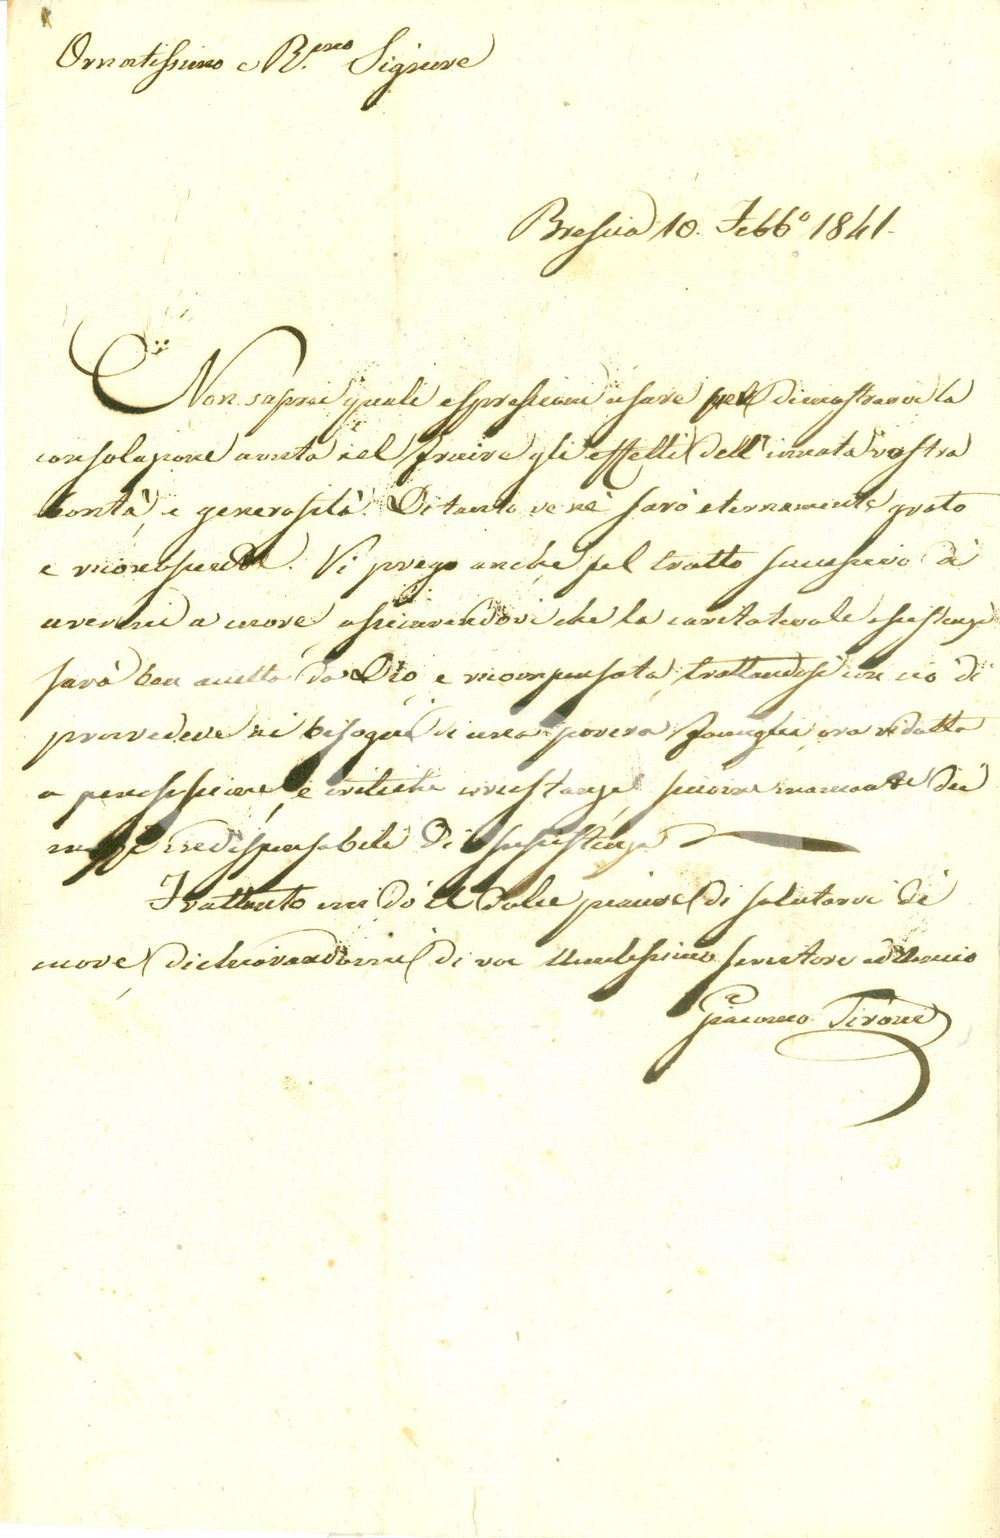 Ornatissimo e R.mo Signore
Brescia 10. Febb.o 1841.
Non saprei quale espressione usare pel dimostrarvi la
consolazione avuta nel fruire gli effetti dell'innata vostra
bontà, e generosità. Di tanto ve ne sarò eternamente grato
e riconoscente. Vi prego anche pel tratto successivo di
avermi a cuore assicurandovi che la caritatevole assistenza
sarà ben accetta da Dio, e ricompensata, trattandosi con ciò di
provvedere ai bisogni di una povera famiglia, ora ridotta
a penosissime, e critiche circostanze, siccome mancante dei
mezzi indispensabili di sussistenza
Frattanto mi dò il dolce piacere di salutarvi di
cuore, dichiarandomi di voi umilissimo servitore ed amico
Giacomo Tirone